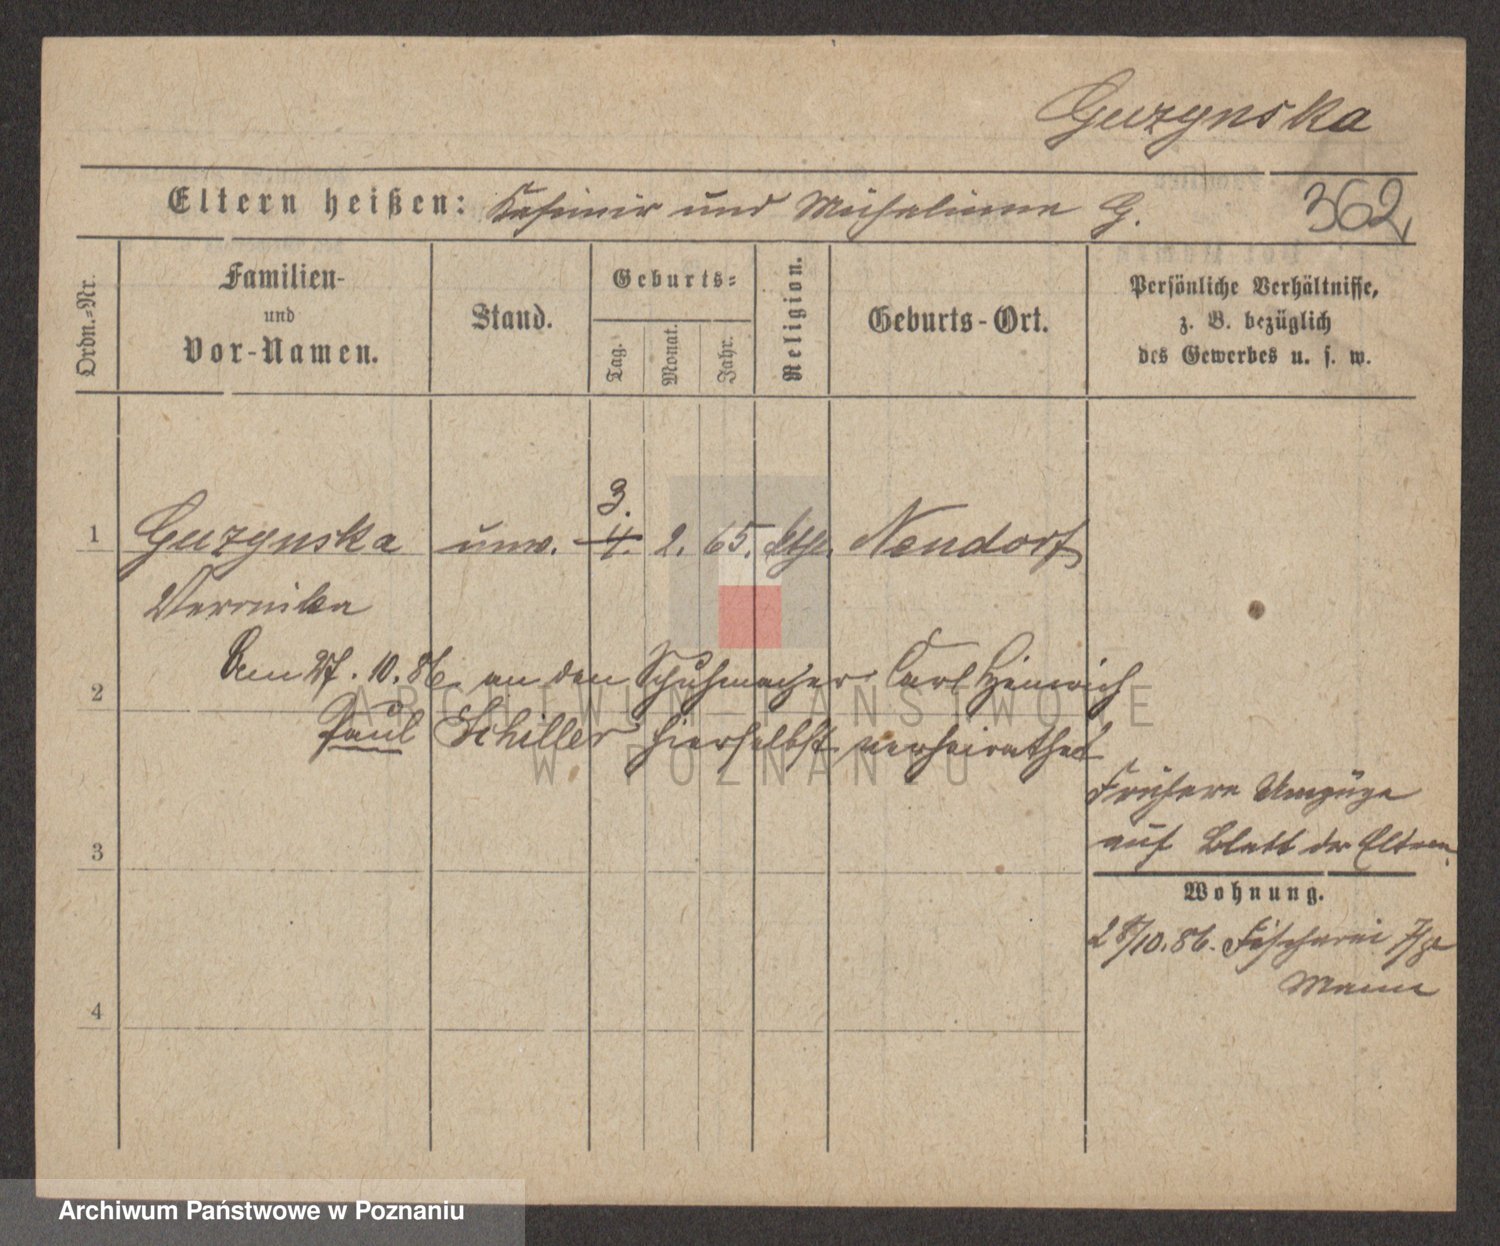 Guzynska
Eltern heißen: Kasimir und Michalinna G.
362,
Ordn.-Nr.
Familien-
und
Vor-Namen.
Stand.
Geburts-
Tag.
Monat.
Jahr.
Religion.
Geburts-Ort.
Persönliche Verhältnisse,
z. B. bezüglich
des Gewerbes u. s. w.
3.
1 Guzynska unv. 4. 2. 65. kth. Neudorf
Veronika
Am 27. 10. 86. an den Schuhmacher Carl Heinrich
2
Paul Schiller hierselbst verheirathet
ARCHIWUM PAŃSTWOWE
W POZNANIU
Frühere Umzüge
auf Blatt der Eltern.
3
Wohnung.
28/10. 86. Fischerei 7/8
4
Archiwum Państwowe w Poznaniu